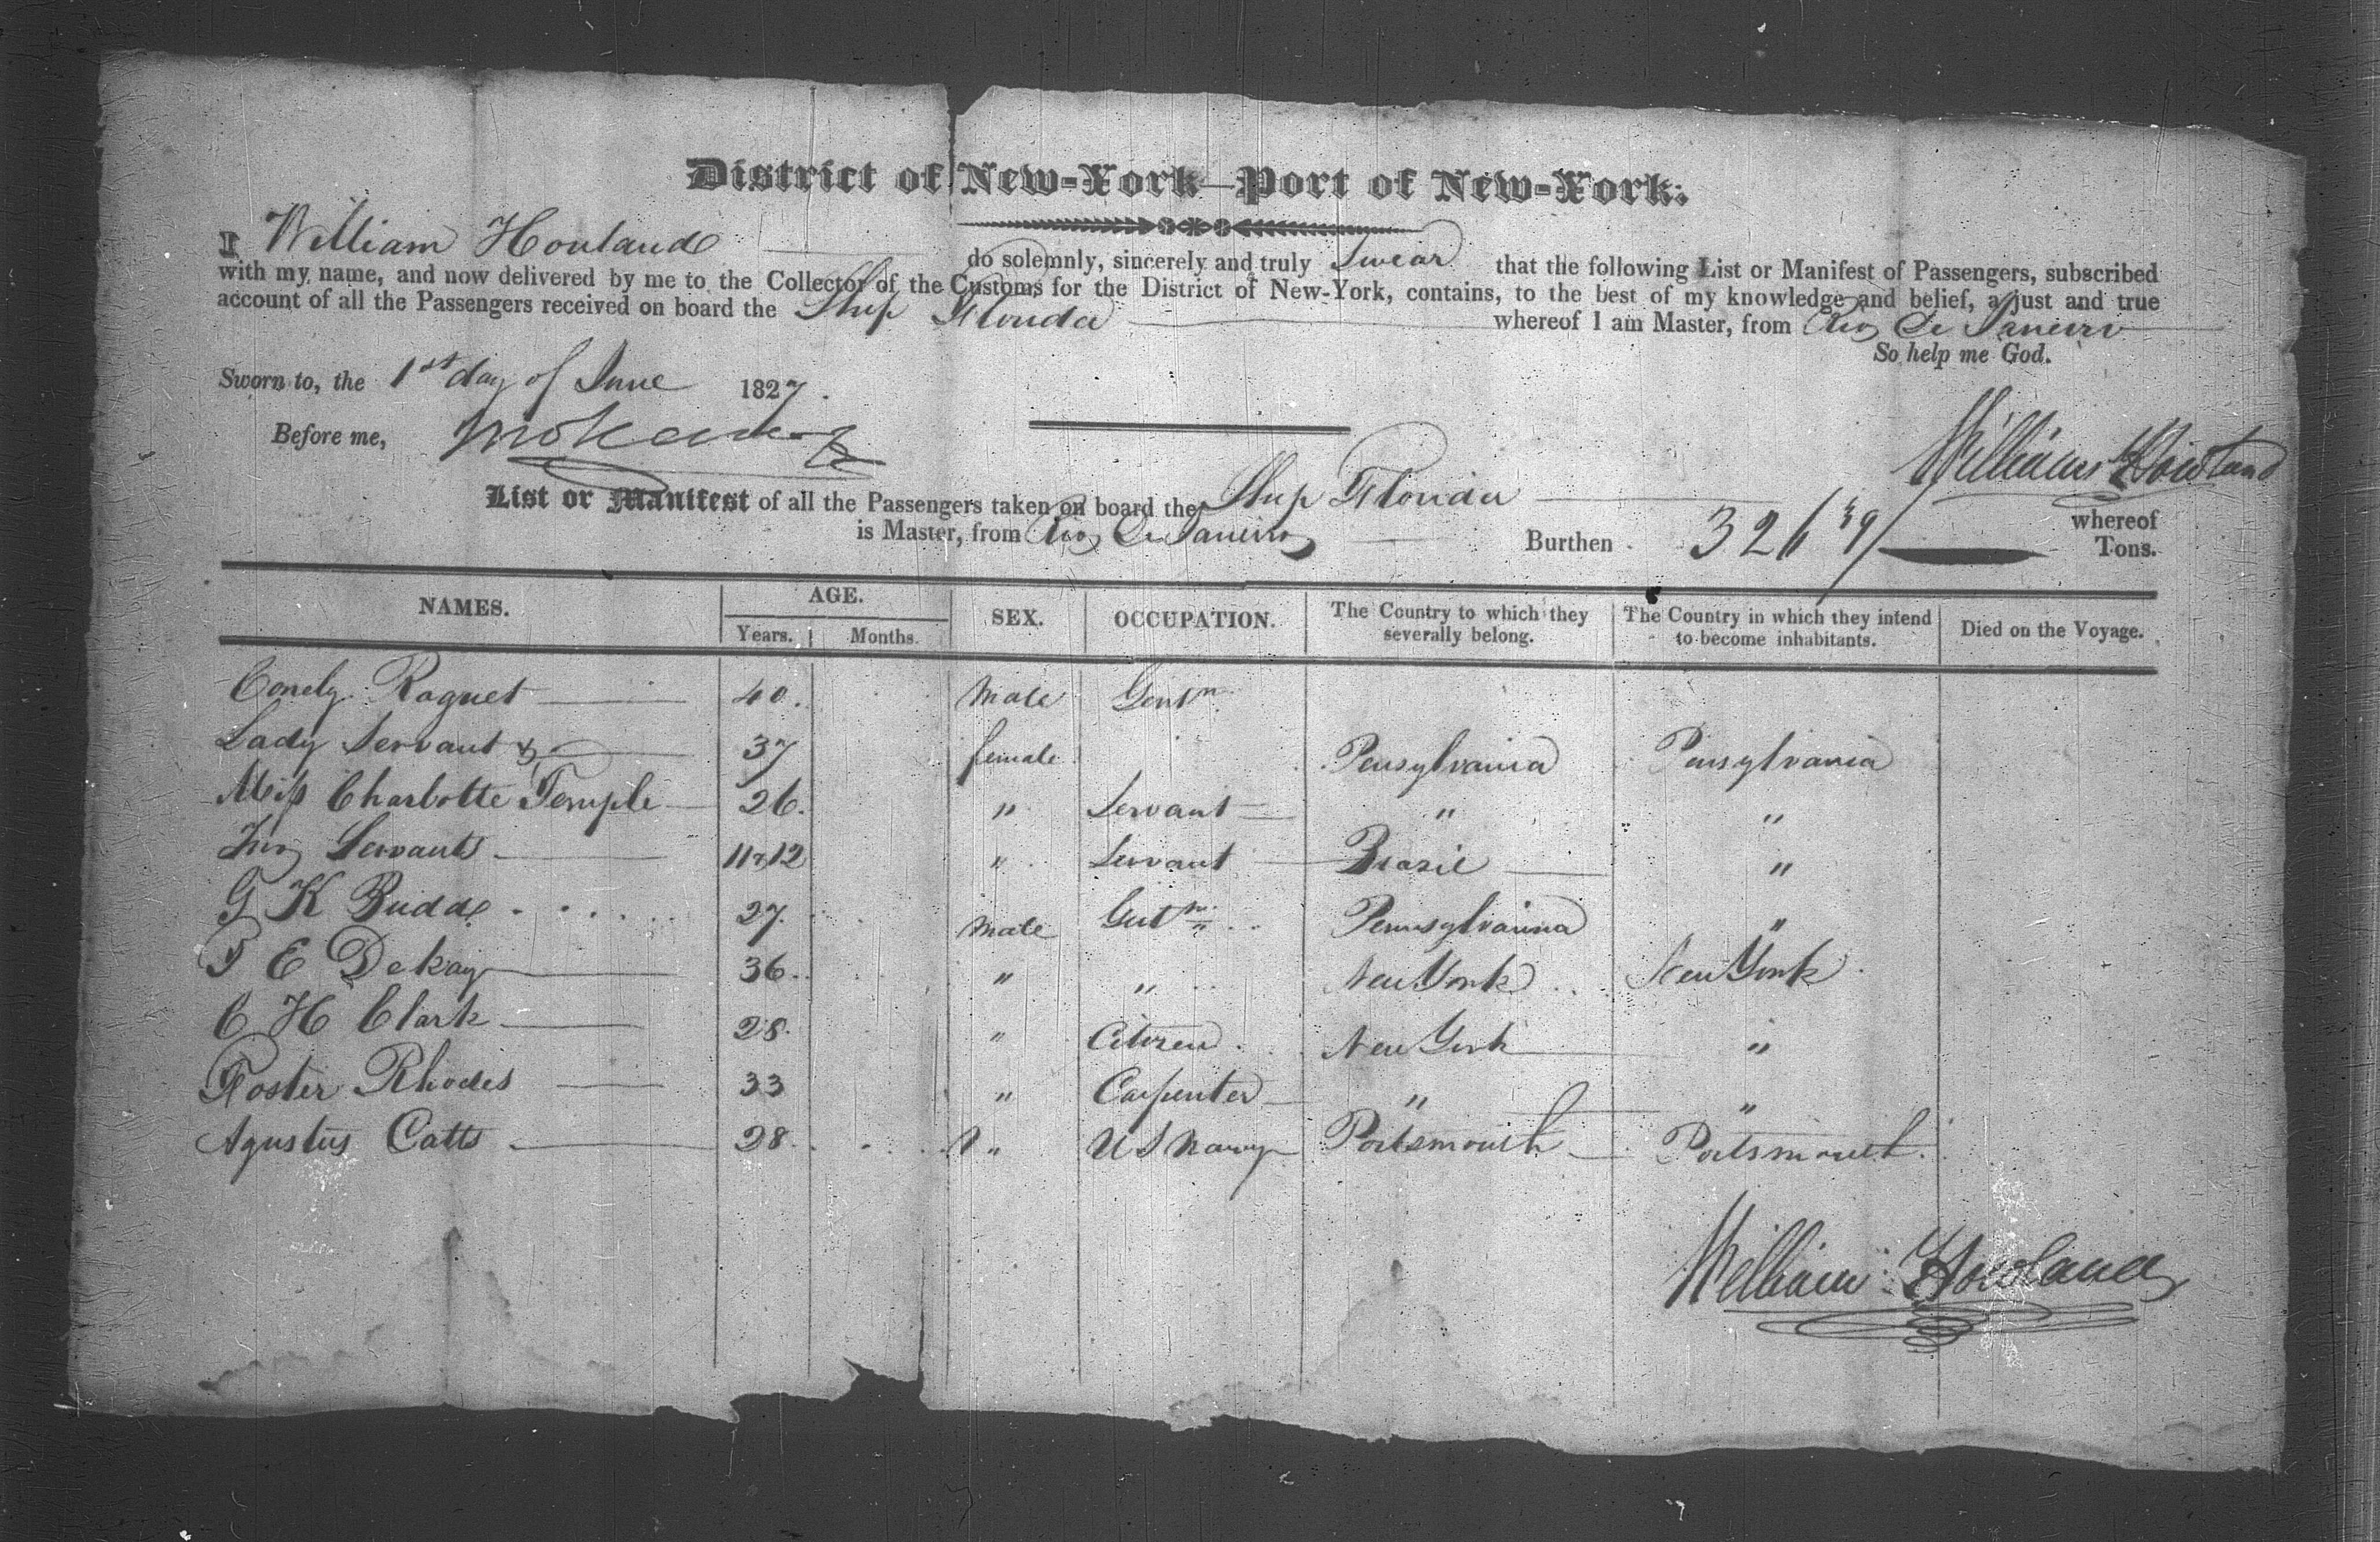 District of New-York—Port of New-York:
I William Houland do solemnly, sincerely and truly Swear that the following List or Manifest of Passengers, subscribed
with my name, and now delivered by me to the Collector of the Customs for the District of New-York, contains, to the best of my knowledge and belief, a just and true
account of all the Passengers received on board the Ship Florida whereof I am Master, from Rio De Janeiro
So help me God.
Sworn to, the 1st day of June 1827.
William Howland
Before me,
List or Manifest of all the Passengers taken on board the Ship Florida whereof
is Master, from Rio De Janeiro Burthen 326 39/ Tons.
NAMES. AGE. SEX. OCCUPATION. The Country to which they severally belong. The Country in which they intend to become inhabitants. Died on the Voyage.
Years. Months.
Condy Raguet 40. Male Gentn
Lady Servant & 37 female Pensylvania Pensylvania
Miss Charlotte Temple 26. " Servant " "
Two Servants 11 & 12 " Servant Brazil "
G K Budd 27. Male Gentn Pennsylvania "
E Dekay 36 " " New York New York
C H Clark 28. " Citizen New York "
Foster Rhodes 33 " Carpenter " "
Agustus Catts 28 " U S Navy Portsmouth Portsmouth
William Howland